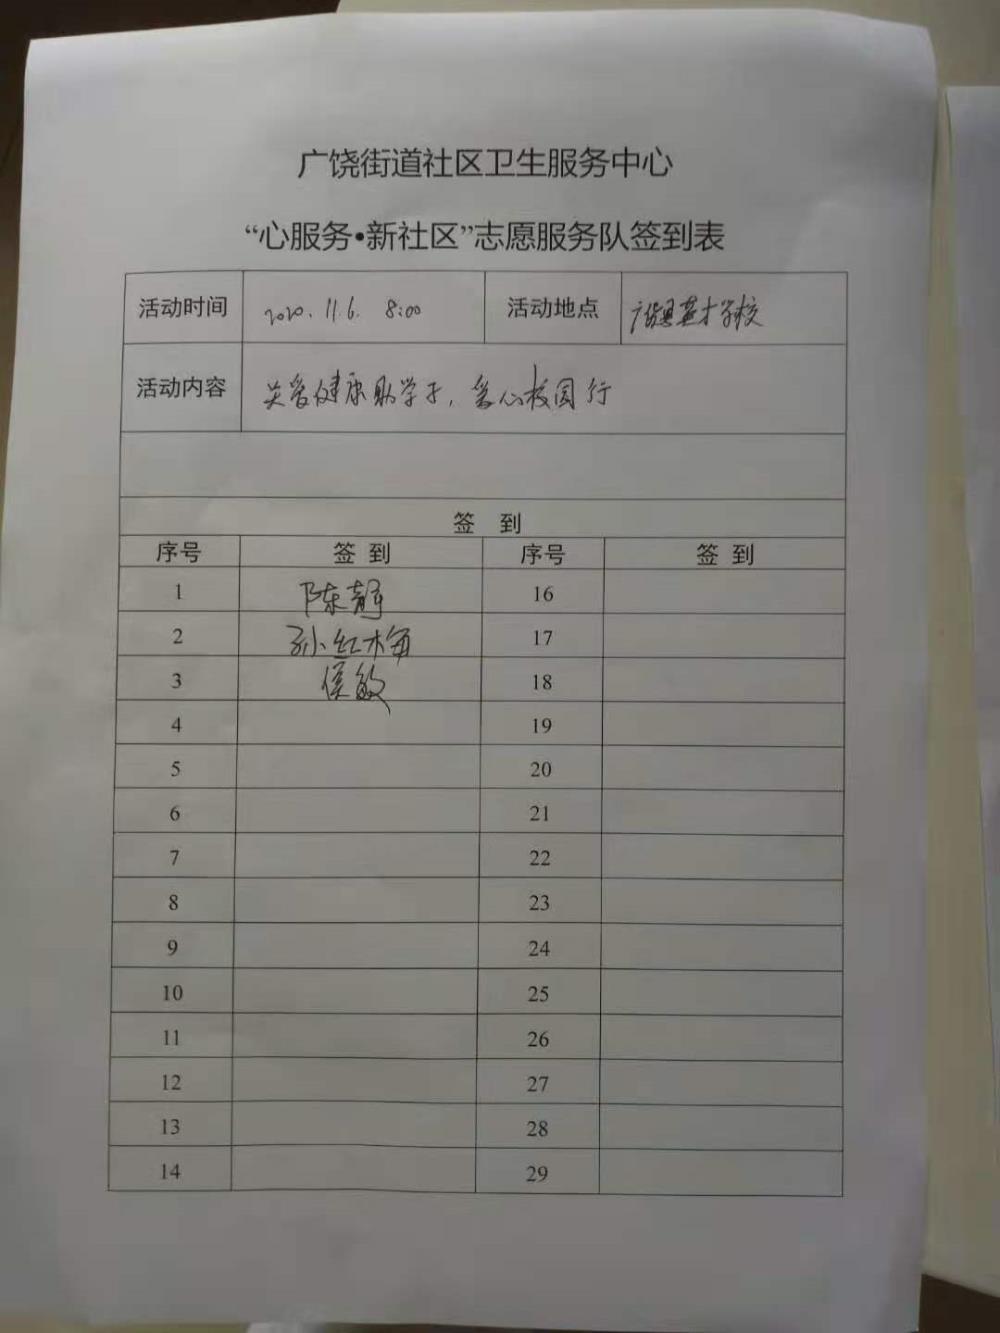 广饶街道社区卫生服务中心
“心服务•新社区”志愿服务队签到表
活动时间 2020.11.6. 8:00 活动地点 广饶县英才学校
活动内容 关爱健康助学子，爱心校园行
签 到
序号 签 到 序号 签 到
1 陈静 16
2 孙红梅 17
3 侯敏 18
4 19
5 20
6 21
7 22
8 23
9 24
10 25
11 26
12 27
13 28
14 29